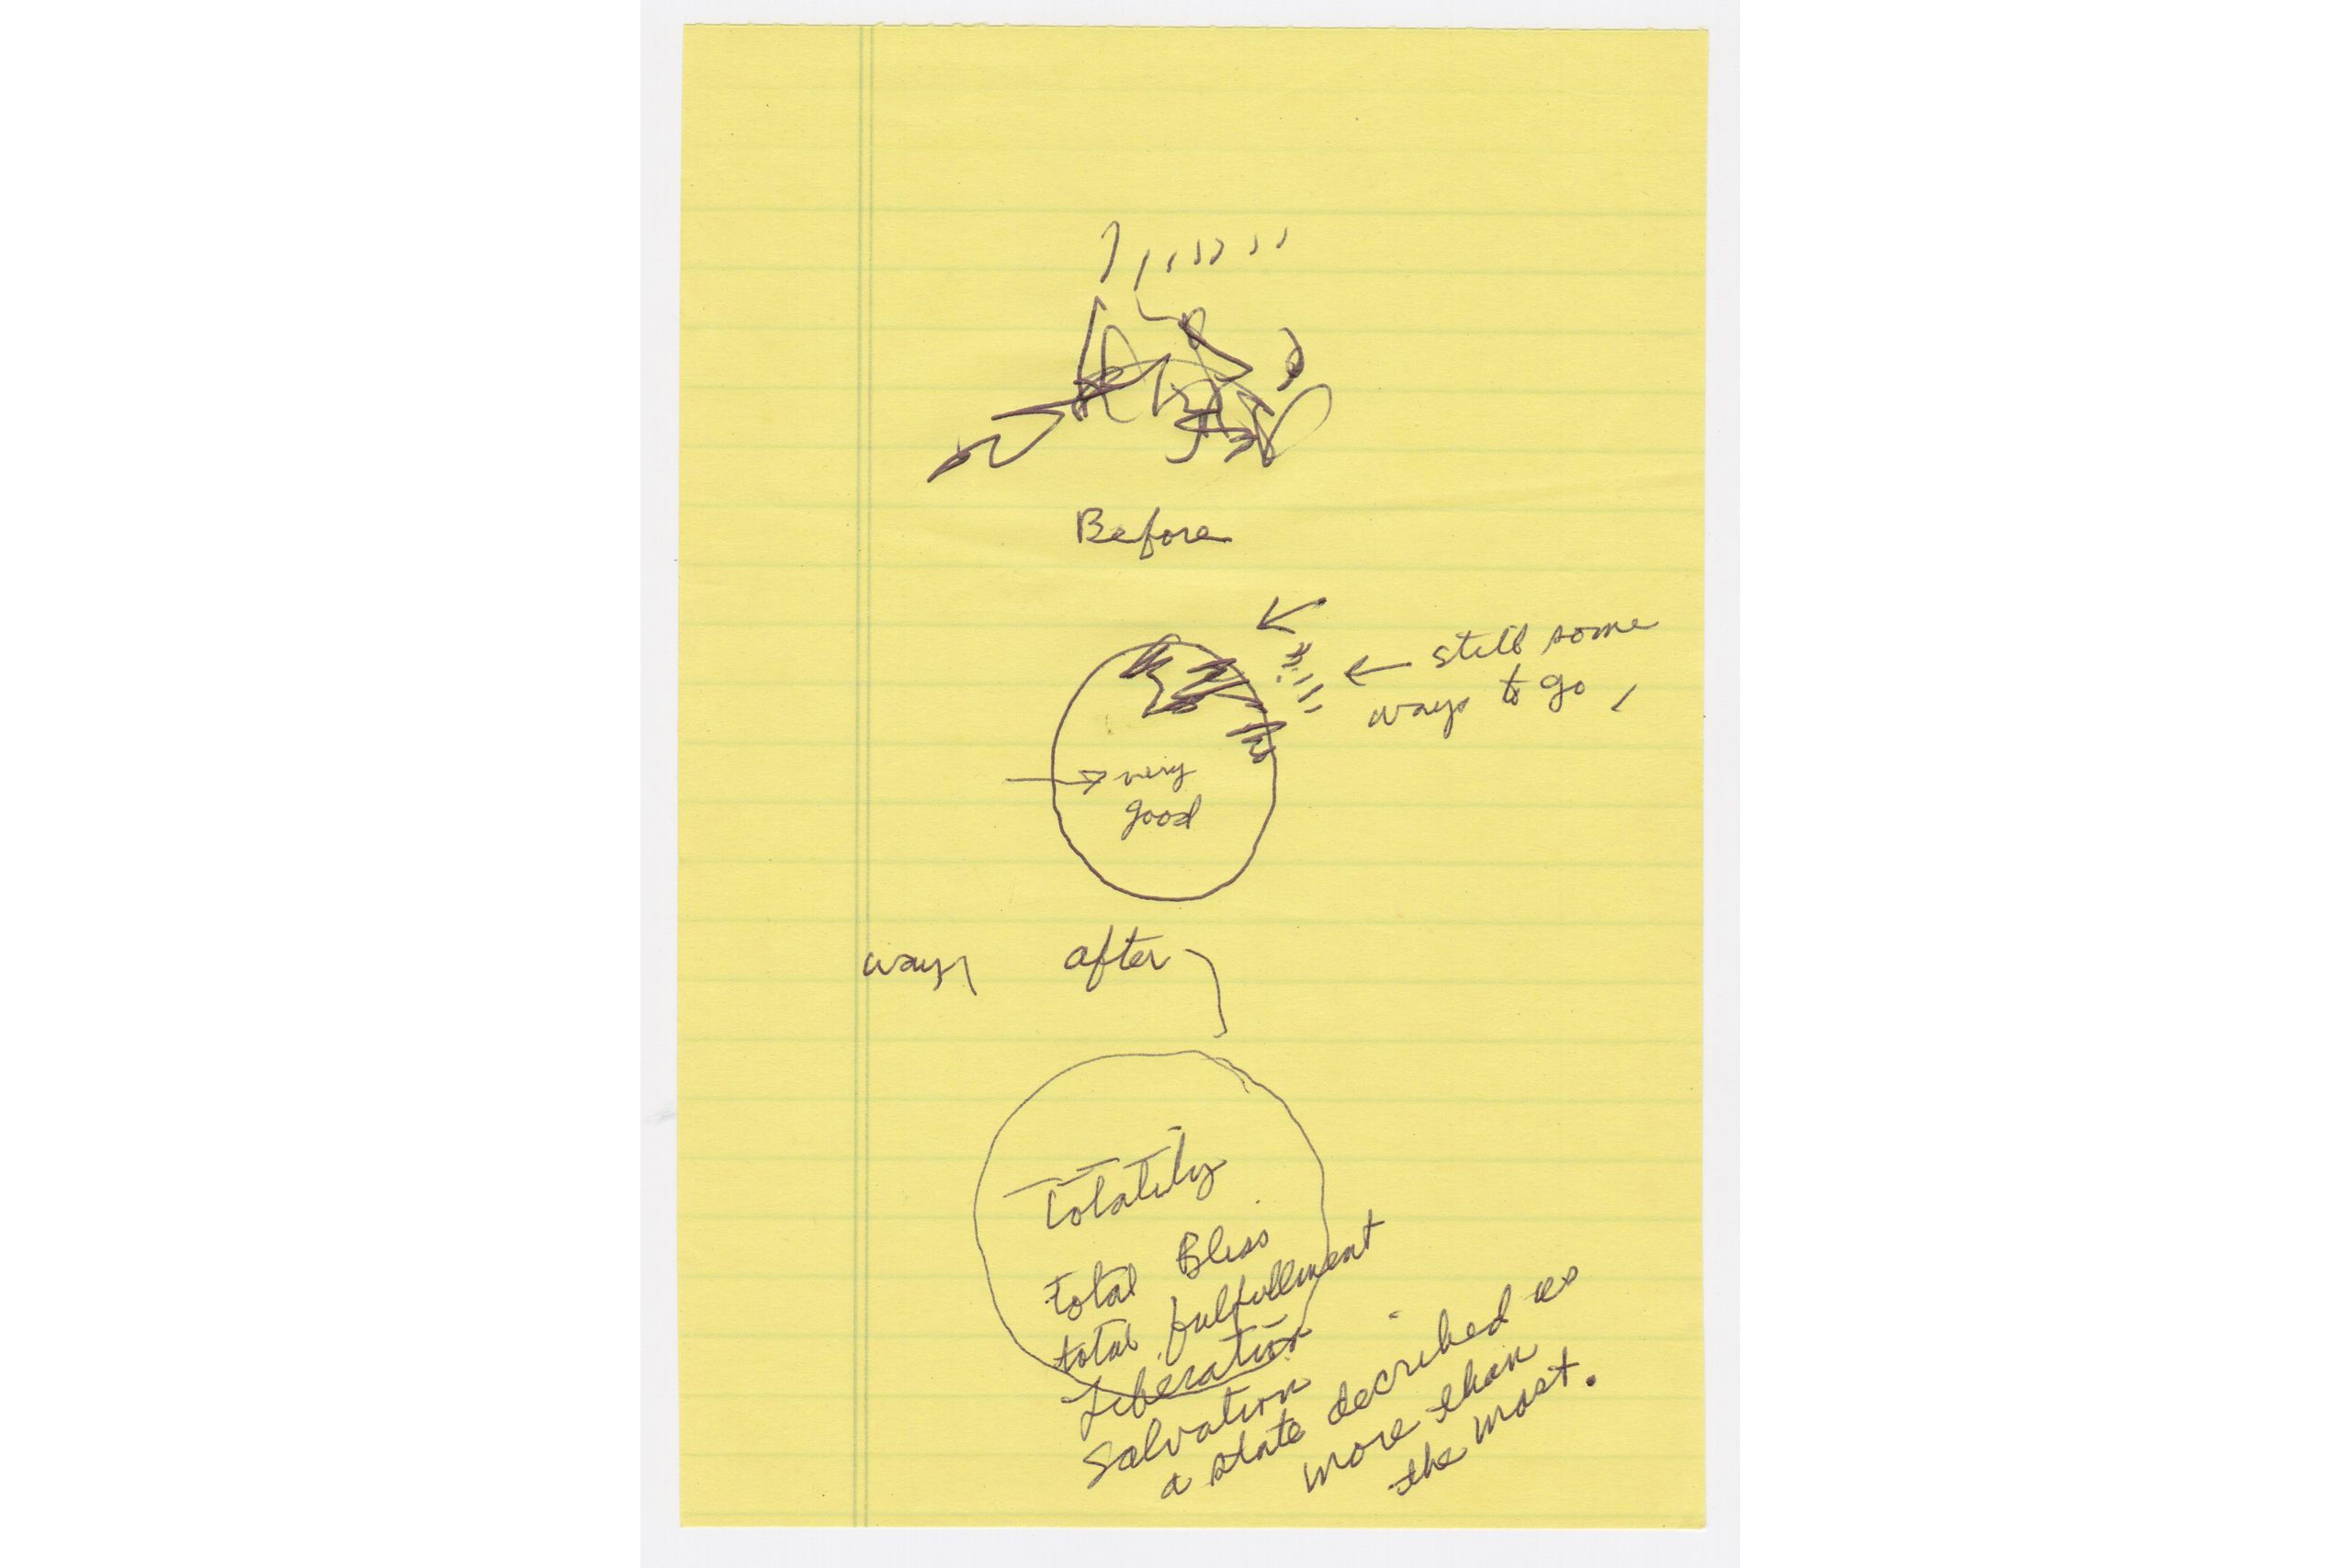 Before
still some
ways to go
very
good
ways after
Totality
total Bliss
total fulfullment
Liberation
Salvation
a state decribed as
more than
the most.